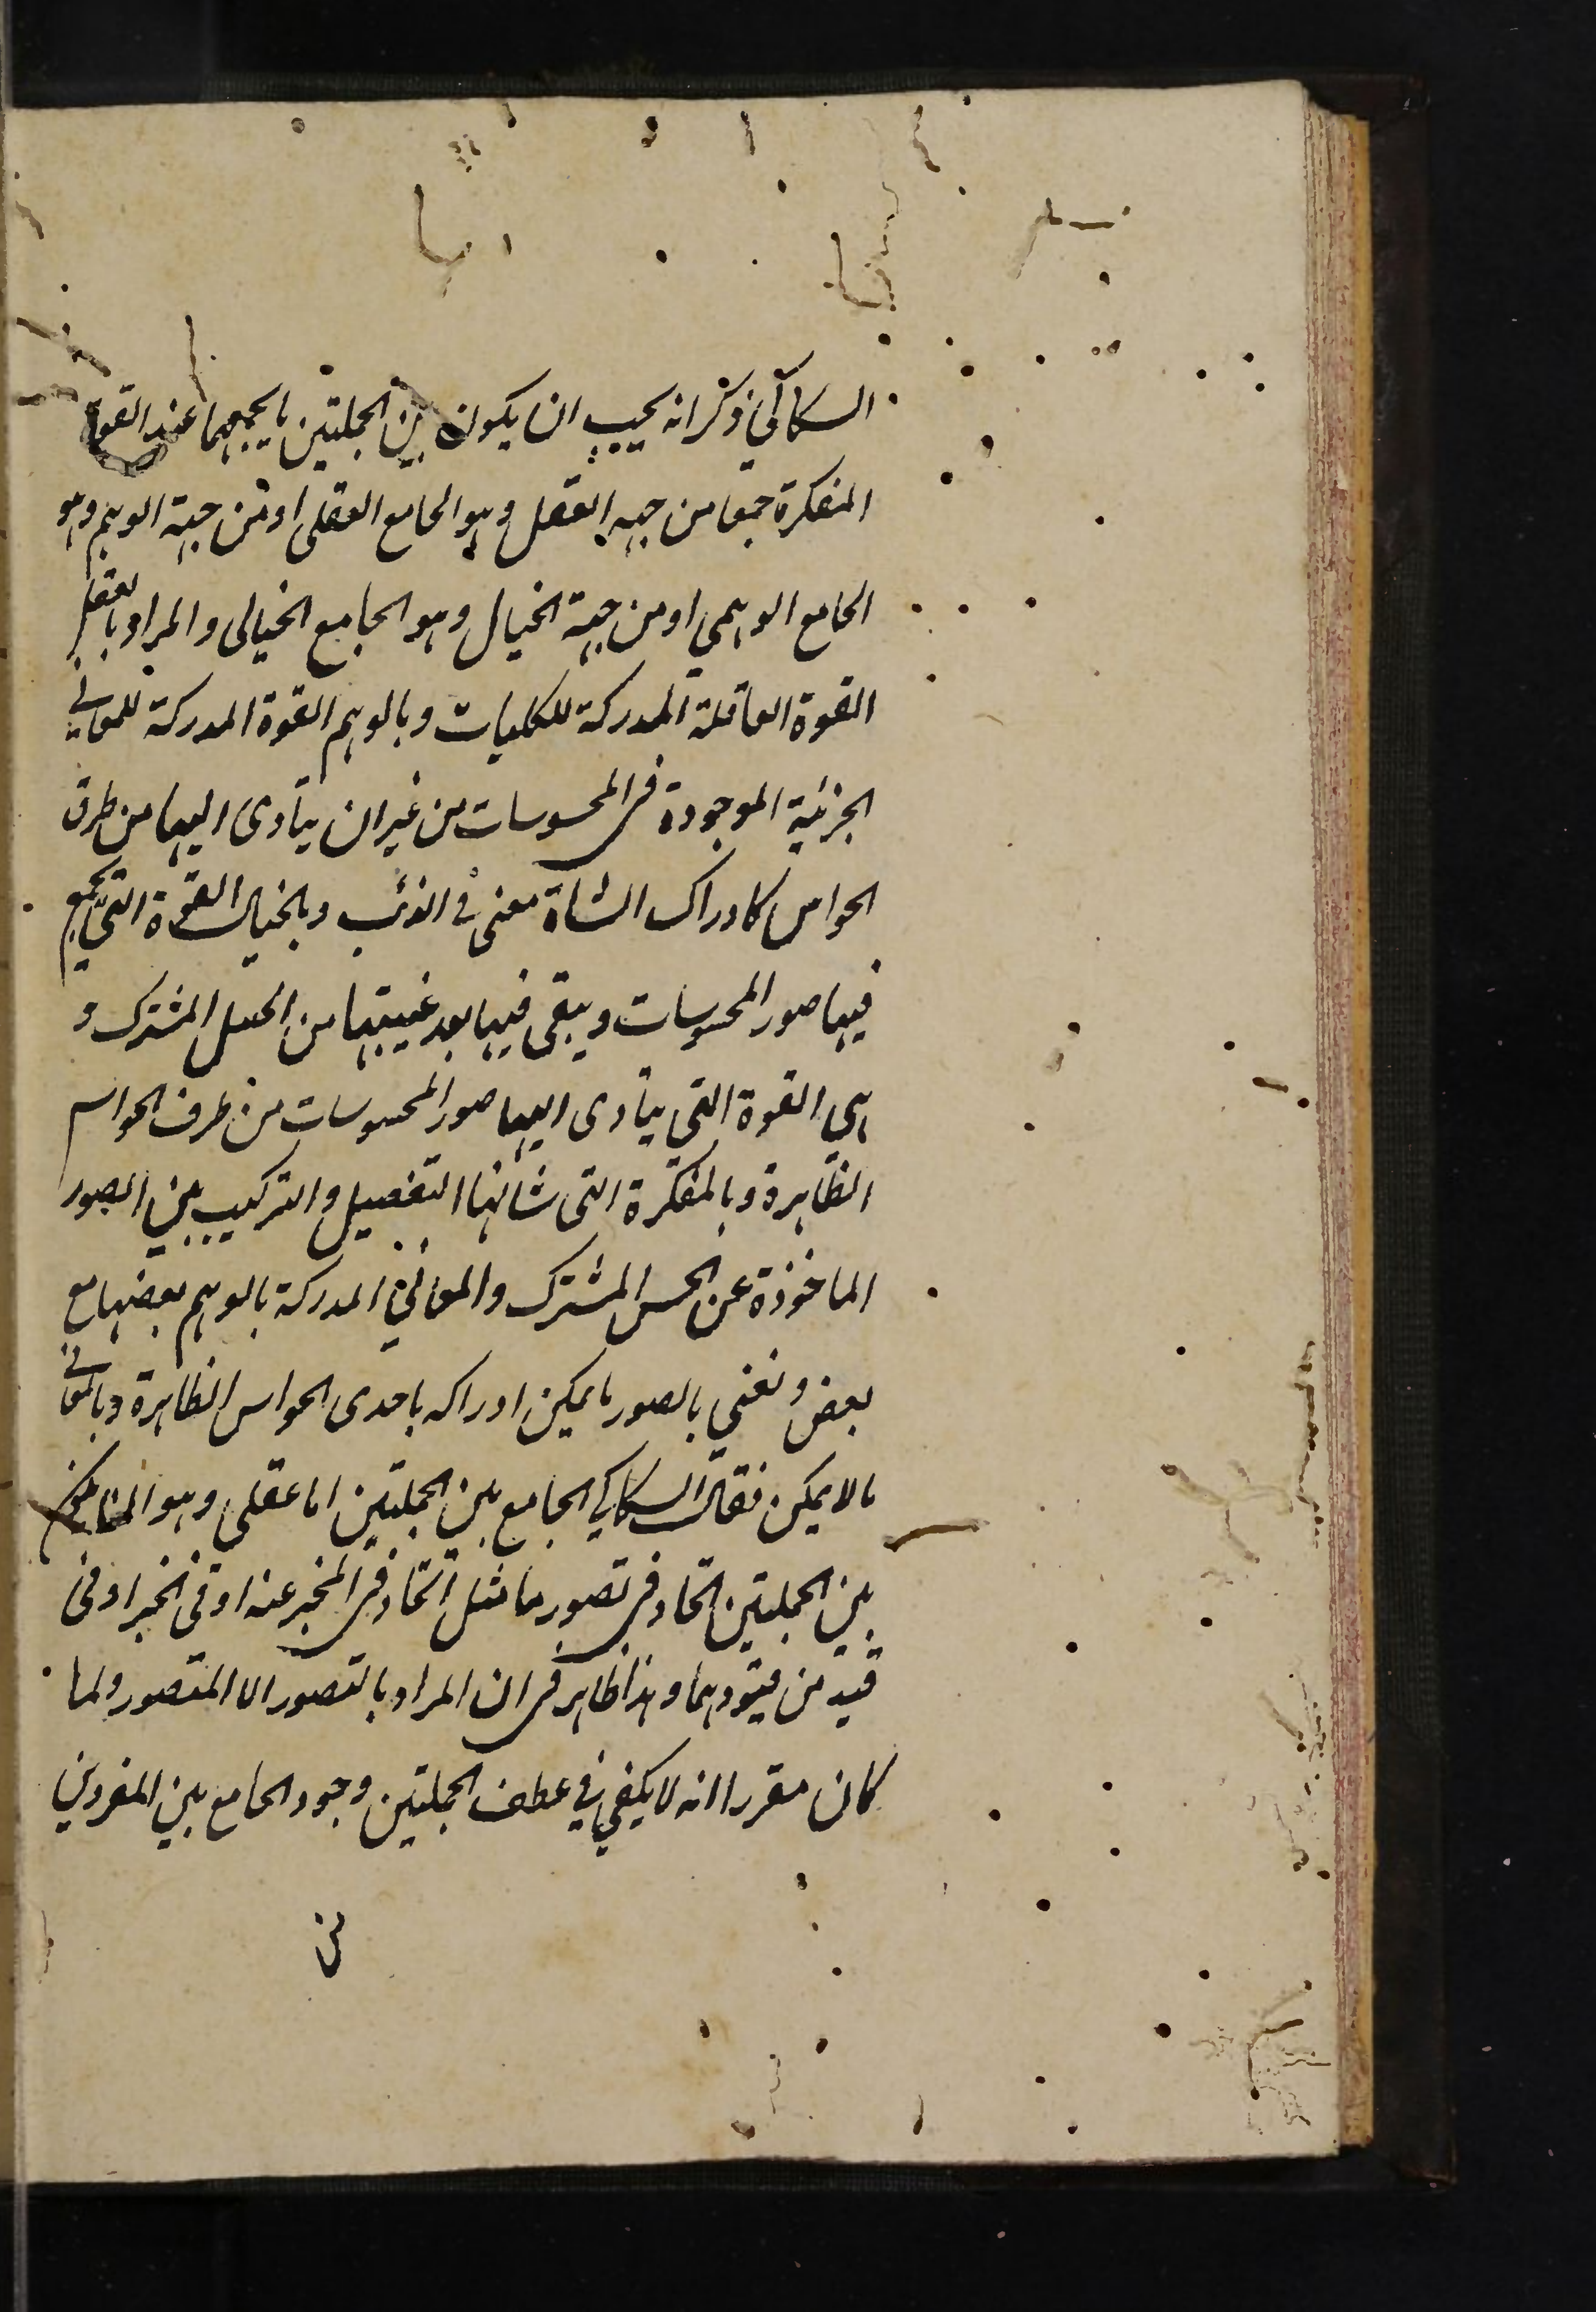 السكاكي ذكر انه يجب ان يكون بين الجملتين ما يجمعهما عند القوة
المفكرة جمعا من جهة العقل وهو الجامع العقلي او من جهة الوهم وهو
الجامع الوهمي او من جهة الخيال وهو الجامع الخيالى والمراد بالعقل
القوة العاقلة المدركة للكليات وبالوهم القوة المدركة للمعاني
الجزئية الموجودة فى المحسوسات من غير ان يتأدى اليها من طرق
الحواس كادراك الشاة معنى فى الذئب وبالخيال القوة التي يجمع
فيها صور المحسوسات ويبقى فيها بعد غيبتها من الحس المشترك و
هي القوة التي يتأدى اليها صور المحسوسات من طرف الحواس
الظاهرة وبالمفكرة التى شانها التفصيل والتركيب بين الصور
الماخوذة عن الحس المشترك والمعاني المدركة بالوهم بعضها مع
بعض ونعني بالصور ما يمكن ادراكه باحدى الحواس الظاهرة وبالمعاني
ما لا يمكن فقال السكاكي الجامع بين الجملتين اما عقلى وهو ان يكون
بين الجملتين اتحاد فى تصور ما مثل اتحاد فى المخبر عنه او فى الخبر او فى
قيد من قيودهما وهذا ظاهر فى ان المراد بالتصور الامر المتصور ولما
كان مقررا انه لا يكفي في عطف الجملتين وجود الجامع بين المفردين
من